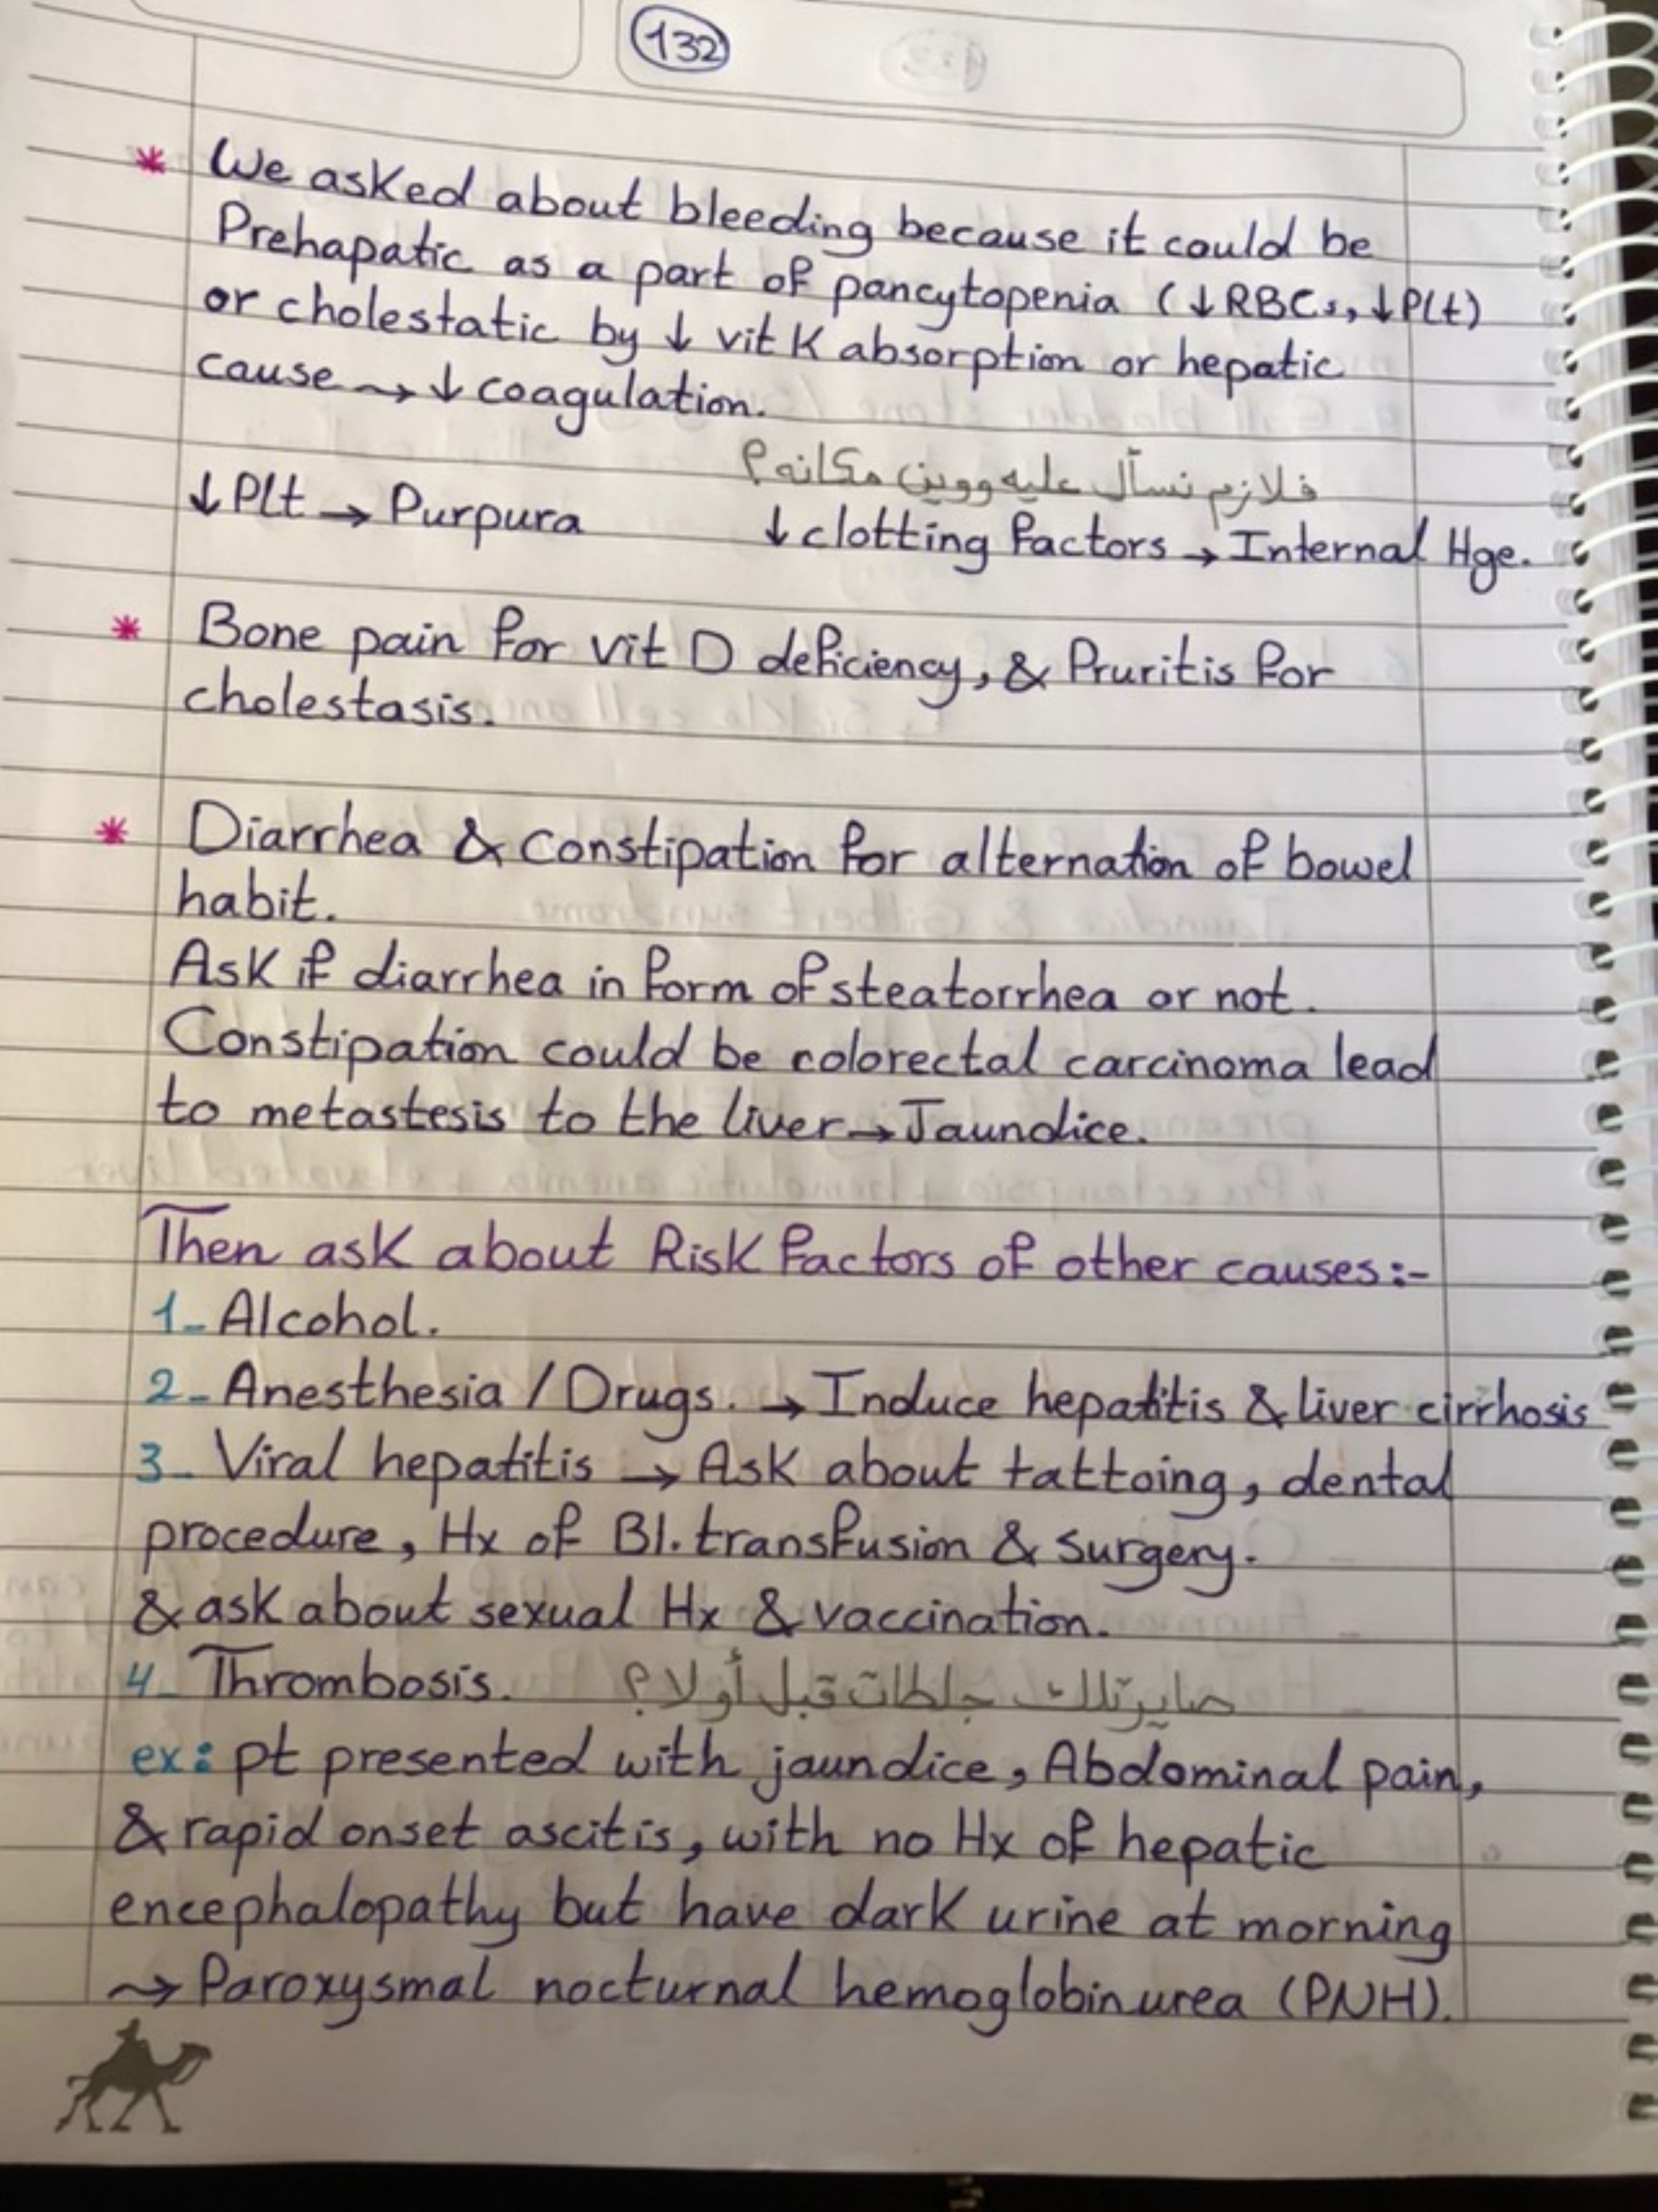 132
* We asked about bleeding because it could be
Prehapatic as a part of pancytopenia (↓RBCs, ↓Plt)
or cholestatic by ↓ vit K absorption or hepatic
cause → ↓ coagulation.
فلازم نسأل عليه ووين مكانه؟
↓Plt → Purpura ↓ clotting factors → Internal Hge.
* Bone pain for vit D deficiency, & Pruritis for
cholestasis.
* Diarrhea & Constipation for alternation of bowel
habit.
Ask if diarrhea in form of steatorrhea or not.
Constipation could be colorectal carcinoma lead
to metastesis to the liver → Jaundice.
Then ask about Risk factors of other causes:-
1- Alcohol.
2- Anesthesia / Drugs. → Induce hepatitis & liver cirrhosis
3- Viral hepatitis → Ask about tattoing, dental
procedure, Hx of Bl. transfusion & surgery.
& ask about sexual Hx & vaccination.
4- Thrombosis. صايرتلك جلطات قبل أو لا؟
ex: pt presented with jaundice, Abdominal pain,
& rapid onset ascitis, with no Hx of hepatic
encephalopathy but have dark urine at morning
→ Paroxysmal nocturnal hemoglobinurea (PNH).